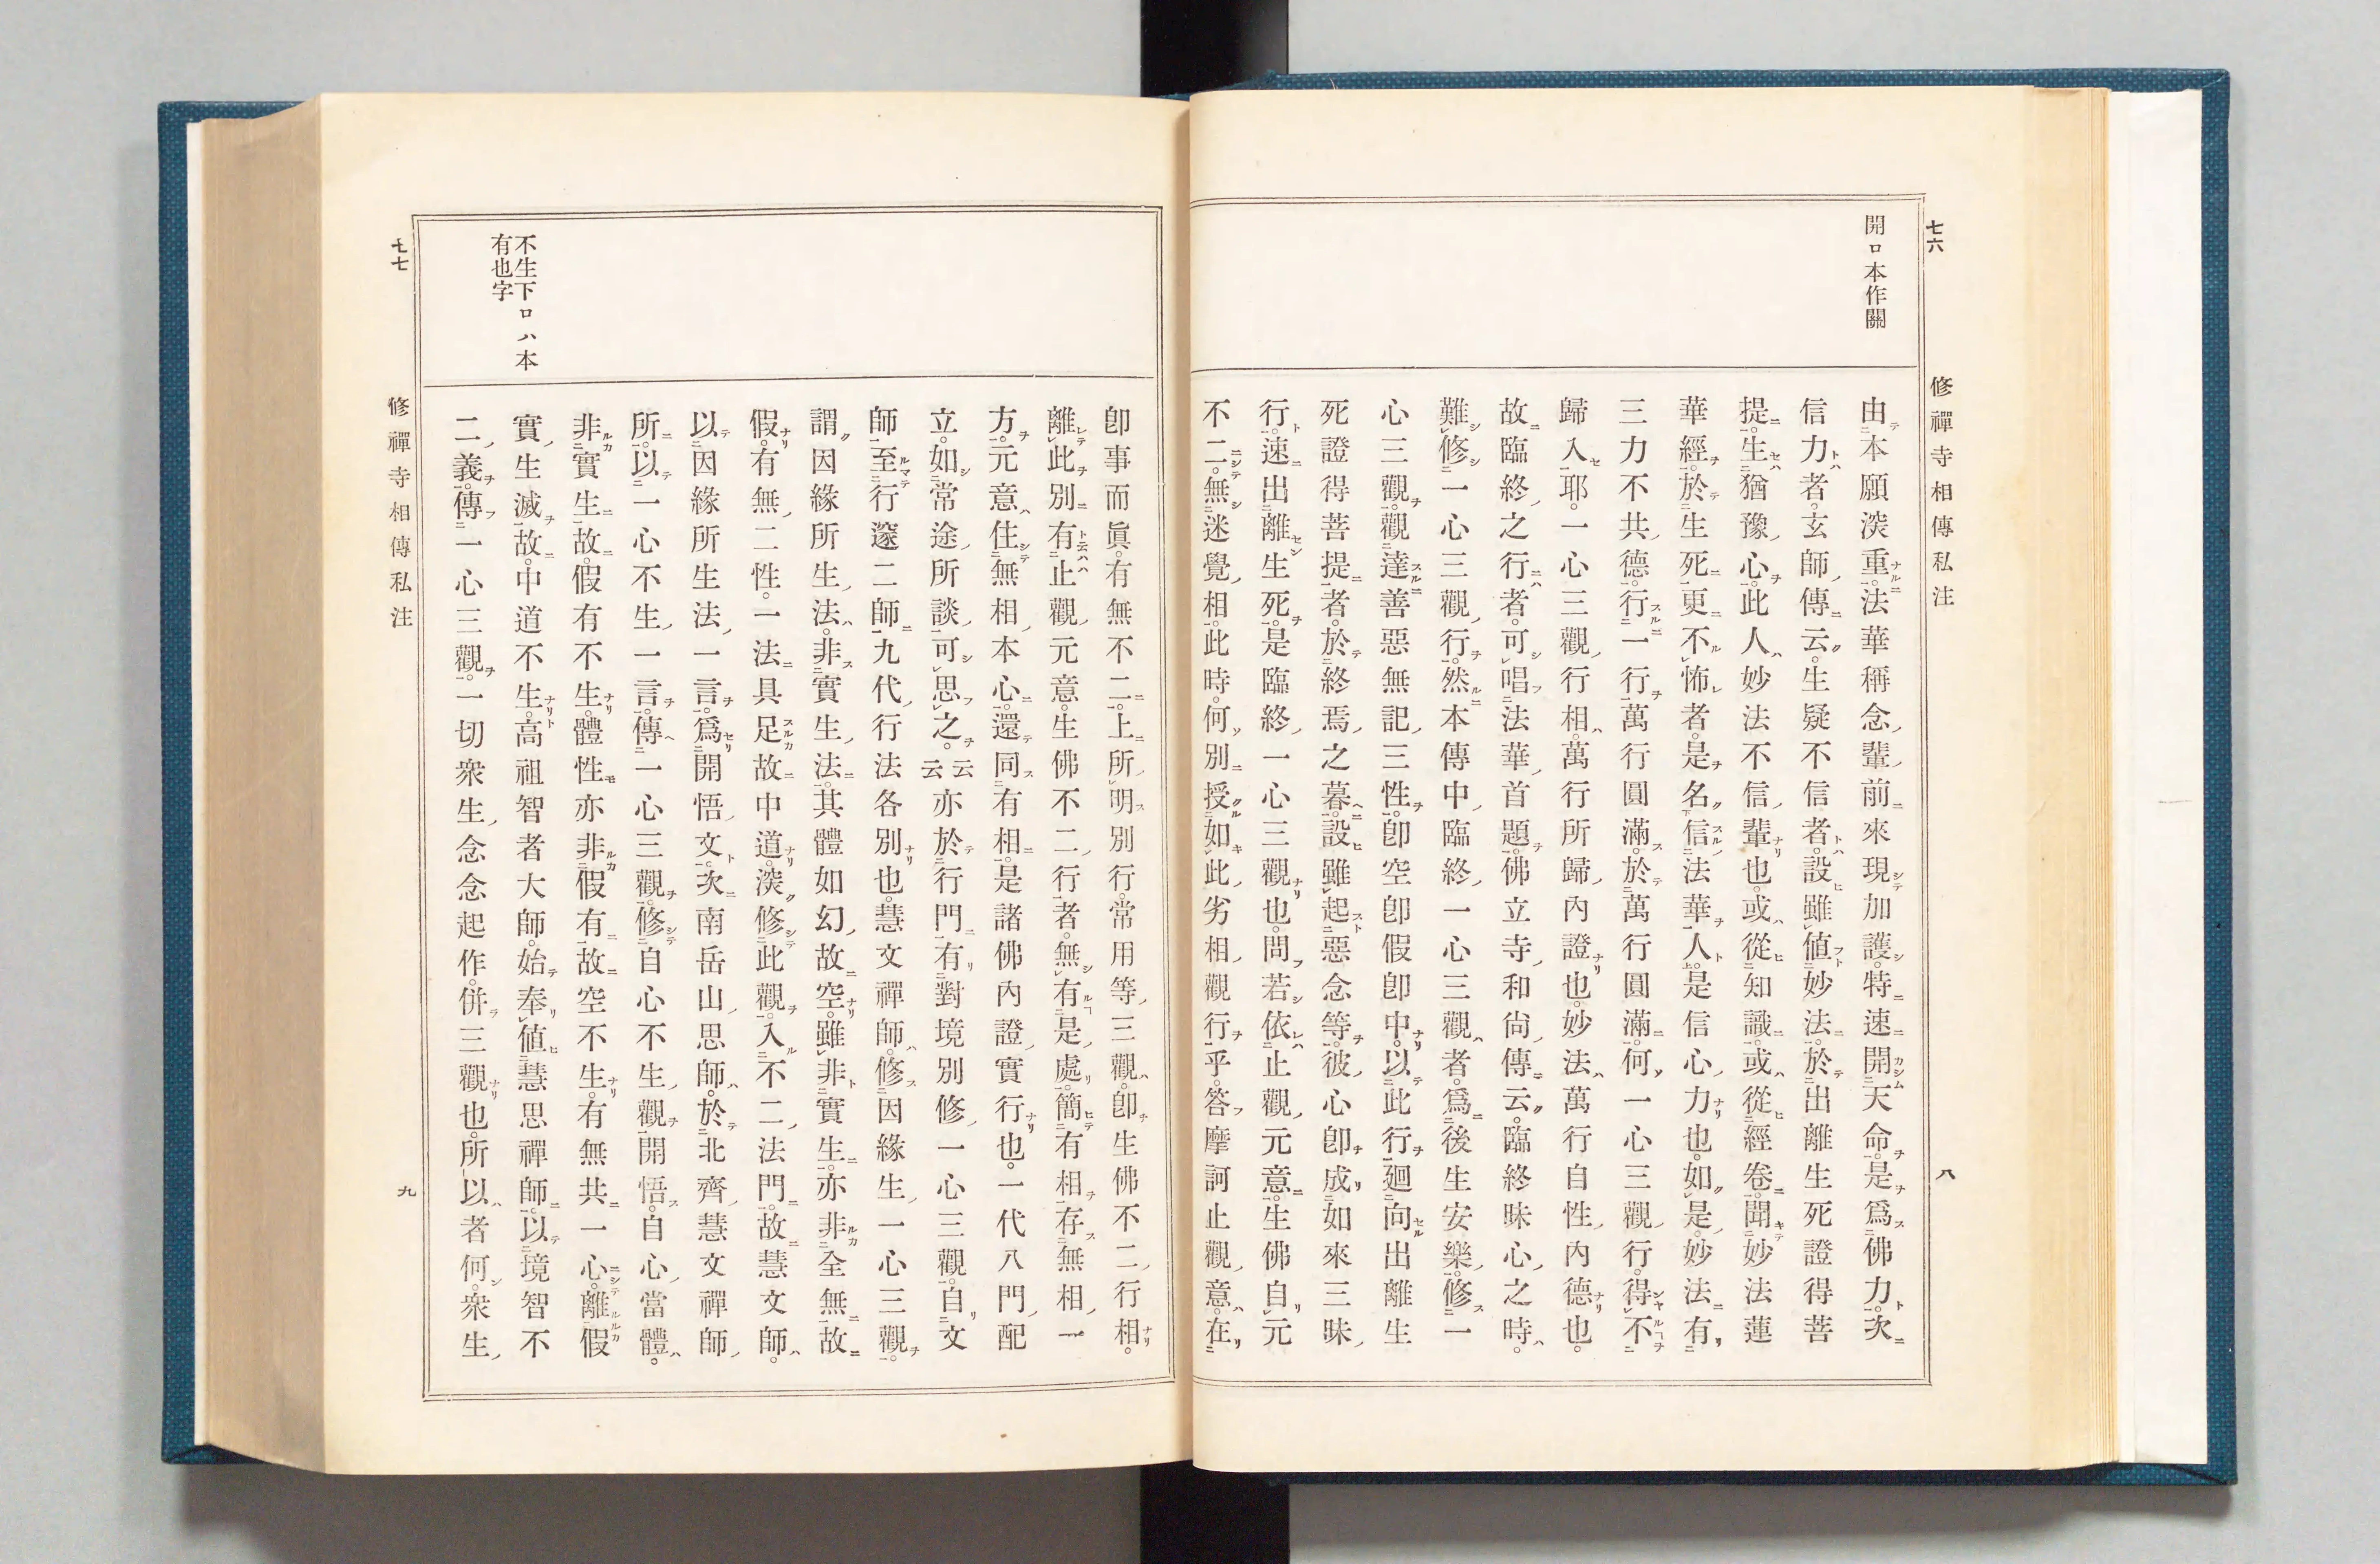 七六
修禪寺相傳私注
八
開ロ本作關
由本願深重。法華稱念輩前來現加護。特速開天命。是爲佛力。次
信力者。玄師傳云。生疑不信者。設雖値妙法。於出離生死證得菩
提生猶豫心。此人妙法不信輩也。或從知識。或從經卷。聞妙法蓮
華經。於生死更不怖者。是名信法華人。是信心力也。如是妙法有
三力不共德。行一行萬行圓滿。於萬行圓滿。何一心三觀行。得不
歸入耶。一心三觀行相。萬行所歸內證也。妙法萬行自性內德也。
故臨終之行者。可唱法華首題。佛立寺和尙傳云。臨終昧心之時。
難修一心三觀行。然本傳中臨終一心三觀者。爲後生安樂。修一
心三觀。觀達善惡無記三性。卽空卽假卽中。以此行廻向出離生
死證得菩提者。於終焉之暮。設雖起惡念等。彼心卽成如來三昧
行。速出離生死。是臨終一心三觀也。問若依止觀元意。生佛自元
不二。無迷覺相。此時何別授如此劣相觀行乎。答摩訶止觀意。在
卽事而眞。有無不二。上所明別行。常用等三觀。卽生佛不二行相。
離此別有止觀元意。生佛不二行者。無有是處。簡有相存無相一
方。元意住無相本心。還同有相。是諸佛內證實行也。一代八門配
立。如常途所談。可思之。云云亦於行門有對境別修一心三觀。自文
師至行邃二師。九代行法各別也。慧文禪師。修因緣生一心三觀。
謂因緣所生法。非實生法。其體如幻故空。雖非實生。亦非全無故
假。有無二性。一法具足故中道。深修此觀。入不二法門。故慧文師。
以因緣所生法一言。爲開悟文。次南岳山思師。於北齊慧文禪師
所。以一心不生一言。傳一心三觀。修自心不生觀開悟。自心當體。
非實生故。假有不生。體性亦非假有故。空不生。有無共一心。離假
實生滅故。中道不生。高祖智者大師。始奉値慧思禪師。以境智不
二義。傳一心三觀。一切衆生念念起作。併三觀也。所以者何。衆生
不生下ロハ本
有也字
七七
修禪寺相傳私注
九